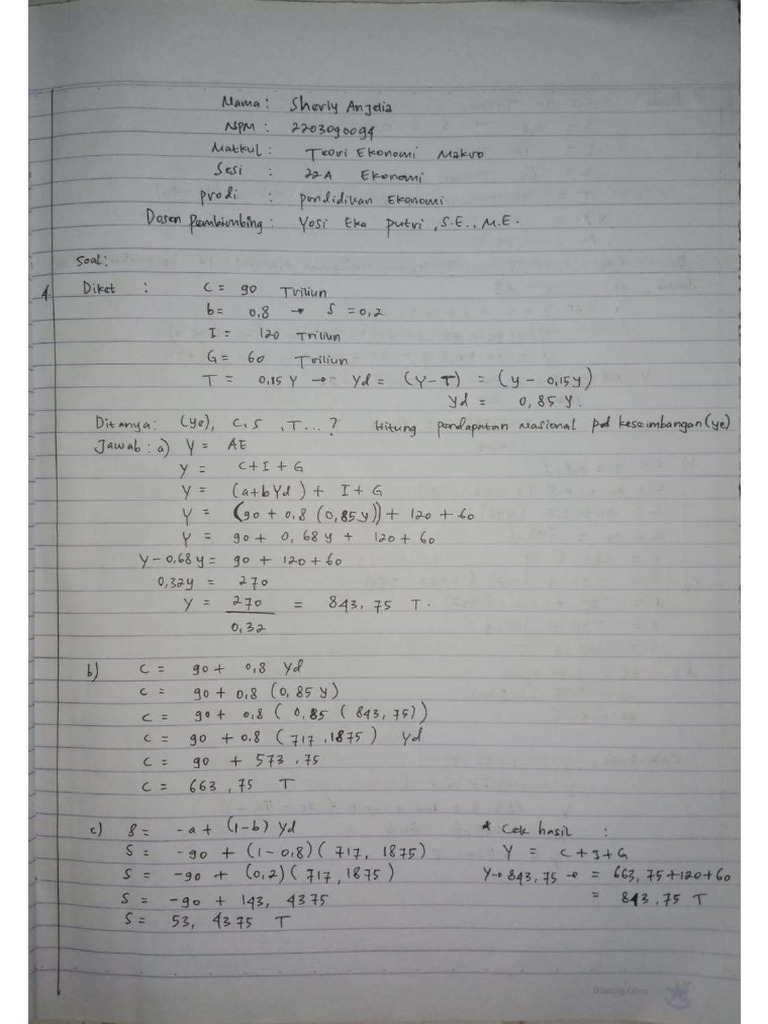 Nama : Sherly Anjelia
NPM : 2203090094
Matkul : Teori Ekonomi Makro
Sesi : 22A Ekonomi
prodi : pendidikan Ekonomi
Dosen Pembimbing : Yosi Eka Putri, S.E., M.E.
Soal:
4. Diket : C = 90 Triliun
b = 0,8 → S = 0,2
I = 120 Triliun
G = 60 Triliun
T = 0,15 Y → Yd = (Y - T) = (y - 0,15y)
Yd = 0,85 y.
Ditanya : (ye), C, S, T...? Hitung pendapatan Nasional pd keseimbangan (ye)
Jawab : a) Y = AE
Y = C + I + G
Y = (a + b Yd) + I + G
Y = (90 + 0,8 (0,85y)) + 120 + 60
Y = 90 + 0,68 y + 120 + 60
Y - 0,68y = 90 + 120 + 60
0,32y = 270
Y = 270 = 843,75 T.
0,32
b) C = 90 + 0,8 Yd
C = 90 + 0,8 (0,85 y)
C = 90 + 0,8 ( 0,85 ( 843,75))
C = 90 + 0,8 ( 717,1875 ) Yd
C = 90 + 573,75
C = 663,75 T
c) S = -a + (1-b) Yd * Cek hasil :
S = -90 + (1 - 0,8) ( 717, 1875) Y = C + I + G
S = -90 + (0,2) ( 717, 1875 ) Y → 843,75 → = 663,75 + 120 + 60
S = -90 + 143, 4375 = 843,75 T
S = 53, 4375 T